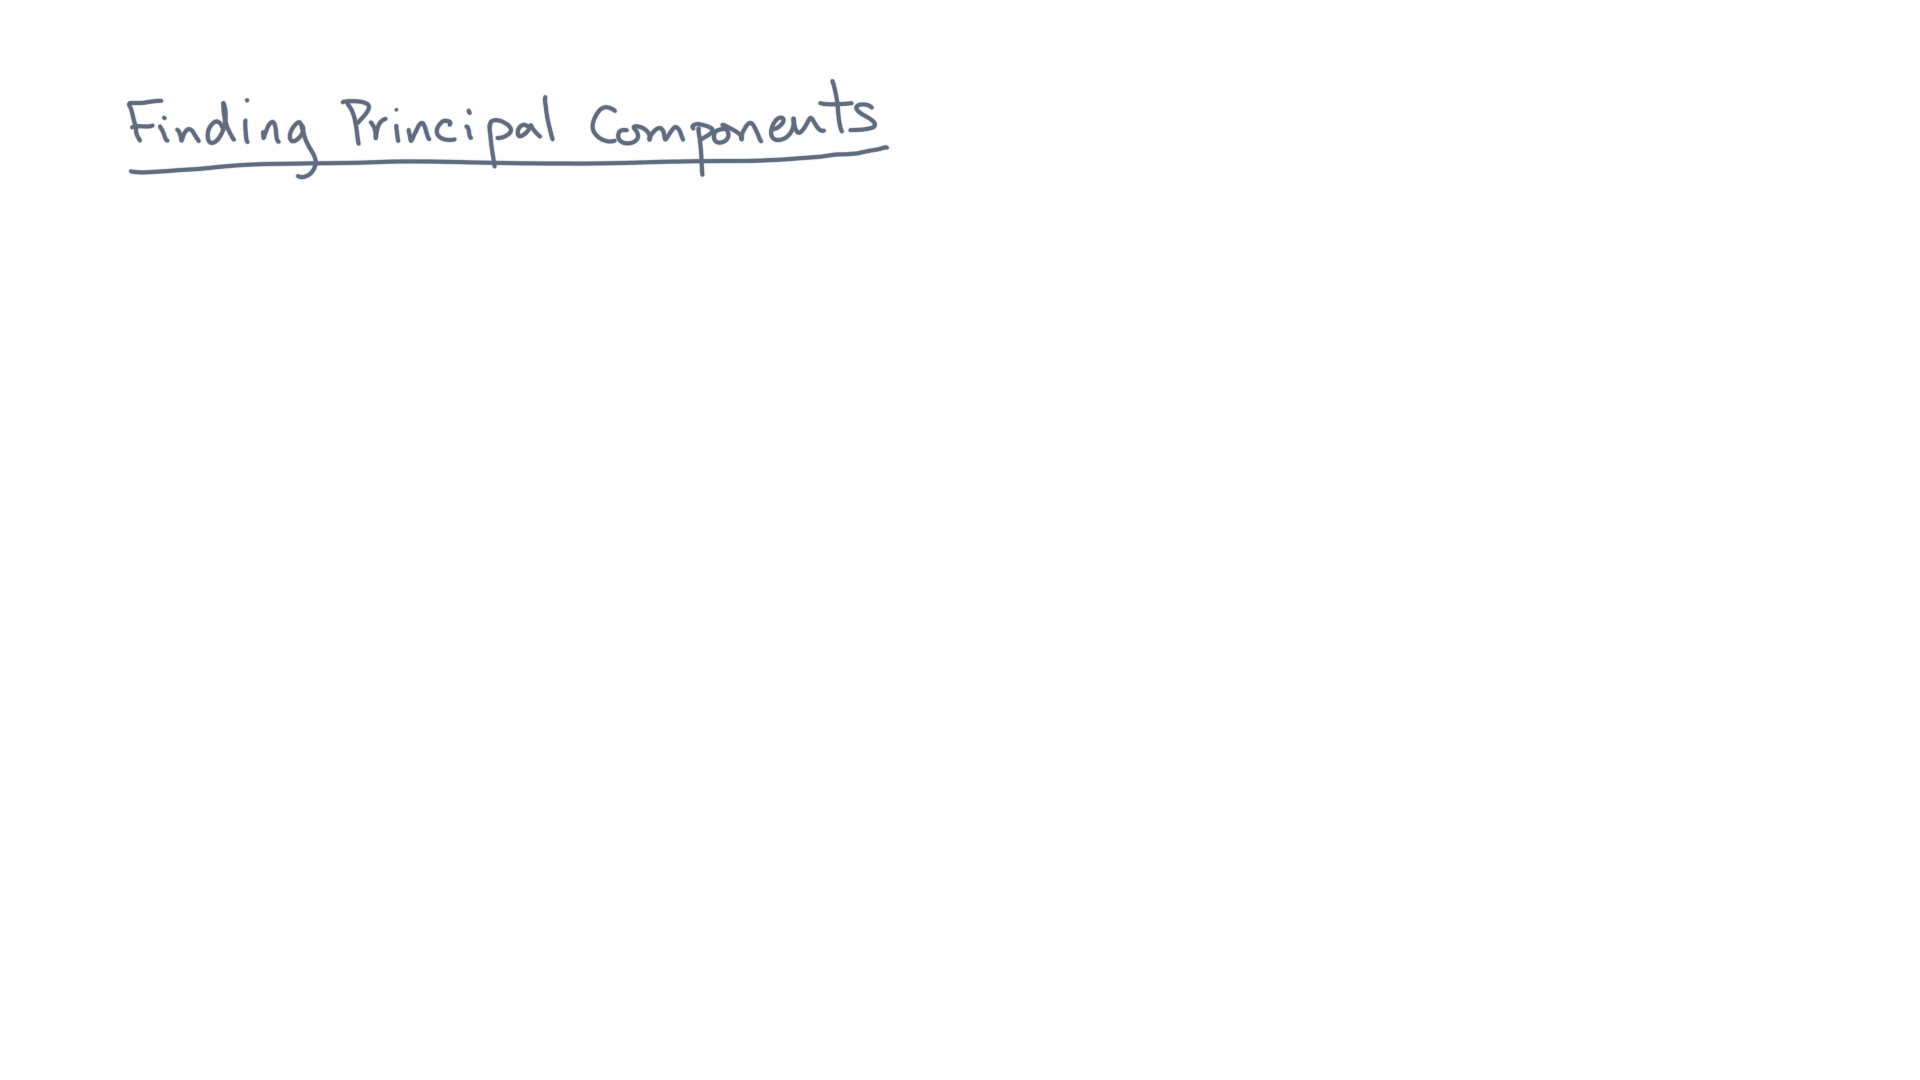 Finding Principal Components